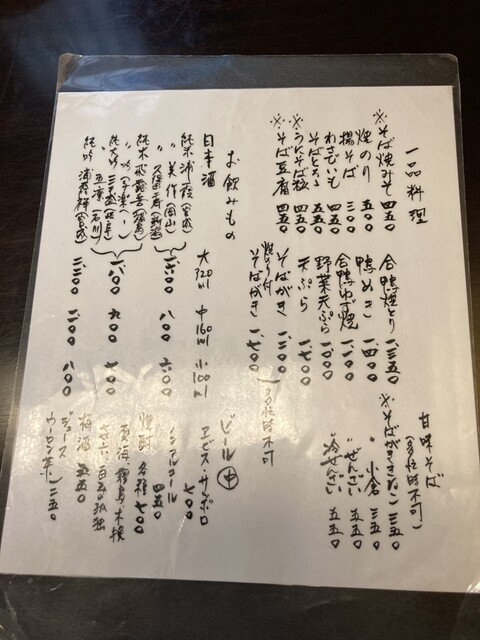 一品料理
※そば焼みそ 四五〇
焼のり 五〇〇
揚そば 三〇〇
わさびいも 四五〇
そばとろろ 五五〇
※うにそば
※そば豆腐 四五〇
合鴨焼とり 一、三五〇
鴨ぬき 一、四〇〇
合鴨ゆず焼 一、二〇〇
野菜天ぷら 一、〇〇〇
天ぷら 一、七〇〇
そばがき 一、三〇〇
焼のり付
そばがき 一、七〇〇
(多忙時不可
甘味そば
(多忙時不可)
※そばがききなこ 三五〇
〃 小倉 三五〇
〃 ぜんざい 五五〇
〃 冷ぜんざい 五五〇
お飲みもの
日本酒 大320ml 中160ml 小100ml
純米 浦霞(宮城)
〃 美作(岡山)
〃 久保田千寿(新潟)
一、六〇〇 八〇〇 六〇〇
純米 飛露喜(福島)
〃 吟
純米吟 三千盛(岐阜)
五凛(石川)
一、八〇〇 九〇〇 七〇〇
純吟 浦霞禅(宮城) 二、二〇〇 一、一〇〇 八〇〇
ビール 中
ヱビス・サッポロ 七〇〇
ノンアルコール 四五〇
焼酎 各種 七〇〇
雲海、霧島、木挽
百年の孤独
梅酒 五五〇
ジュース
ウーロン茶 二五〇